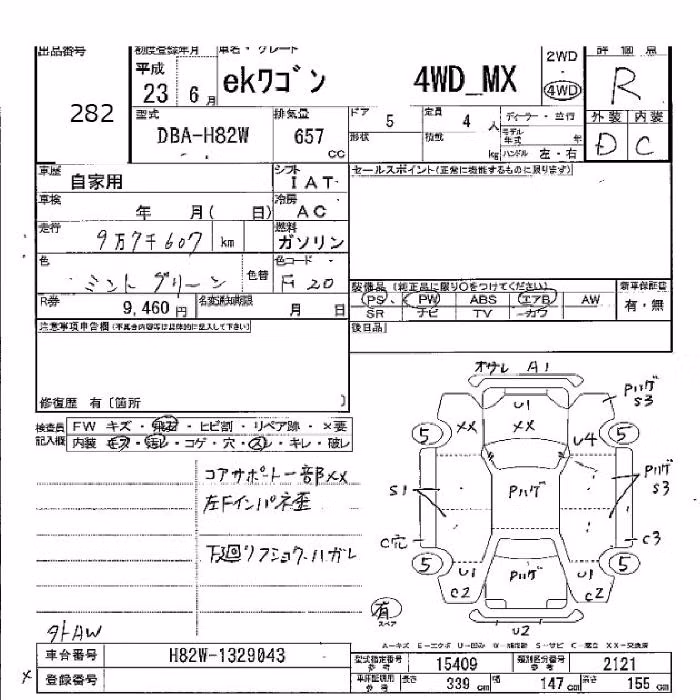 出品番号 初度登録年月 車名・グレード 2WD 評価点
282 平成 23 6月 ekワゴン 4WD_MX ・ 4WD R
型式 排気量 ドア 5 定員 4 人 ディーラー・並行 外装 内装
DBA-H82W 657 CC 形状 積載 kg モデル年式 年 D C
ハンドル 左・右
車歴 自家用 シフト IAT セールスポイント(正常に機能するものに限ります)
車検 年 月( 日) 冷房 AC
走行 9万7千607 km 燃料 ガソリン
色 ミントグリーン 色替 色コード F20
装備品(純正品に限り○をつけてください) 新車保証書
R券 9,460円 名変通知期限 月 日 PS PW ABS エアB AW 有・無
SR ナビ TV カワ
注意事項申告欄(不具合内容等は具体的に記入して下さい) 後日品
修復歴 有〔箇所 〕
検査員記入欄 FW キズ・飛石・ヒビ割・リペア跡・×要
内装 キズ・汚レ・コゲ・穴・スレ・キレ・破レ
コアサポート一部XX
左Fインパネ歪
下廻リフショク・ハガレ
外AW
オサレ A1
U1
Pハゲ
S3
XX XX U4
5 5
S1 Pハゲ Pハゲ
S3
C穴 C3
5 5
U1 Pハゲ U1
C2 C2
有
スペア
U2
A-キズ E-エクボ U-凹み W-補修跡 S-サビ C-腐立 XX-交換済
車台番号 H82W-1329043 型式指定番号 参考 15409 類別区分番号 参考 2121
× 登録番号 車庫証明用 参考 長さ 339 cm 幅 147 cm 高さ 155 cm